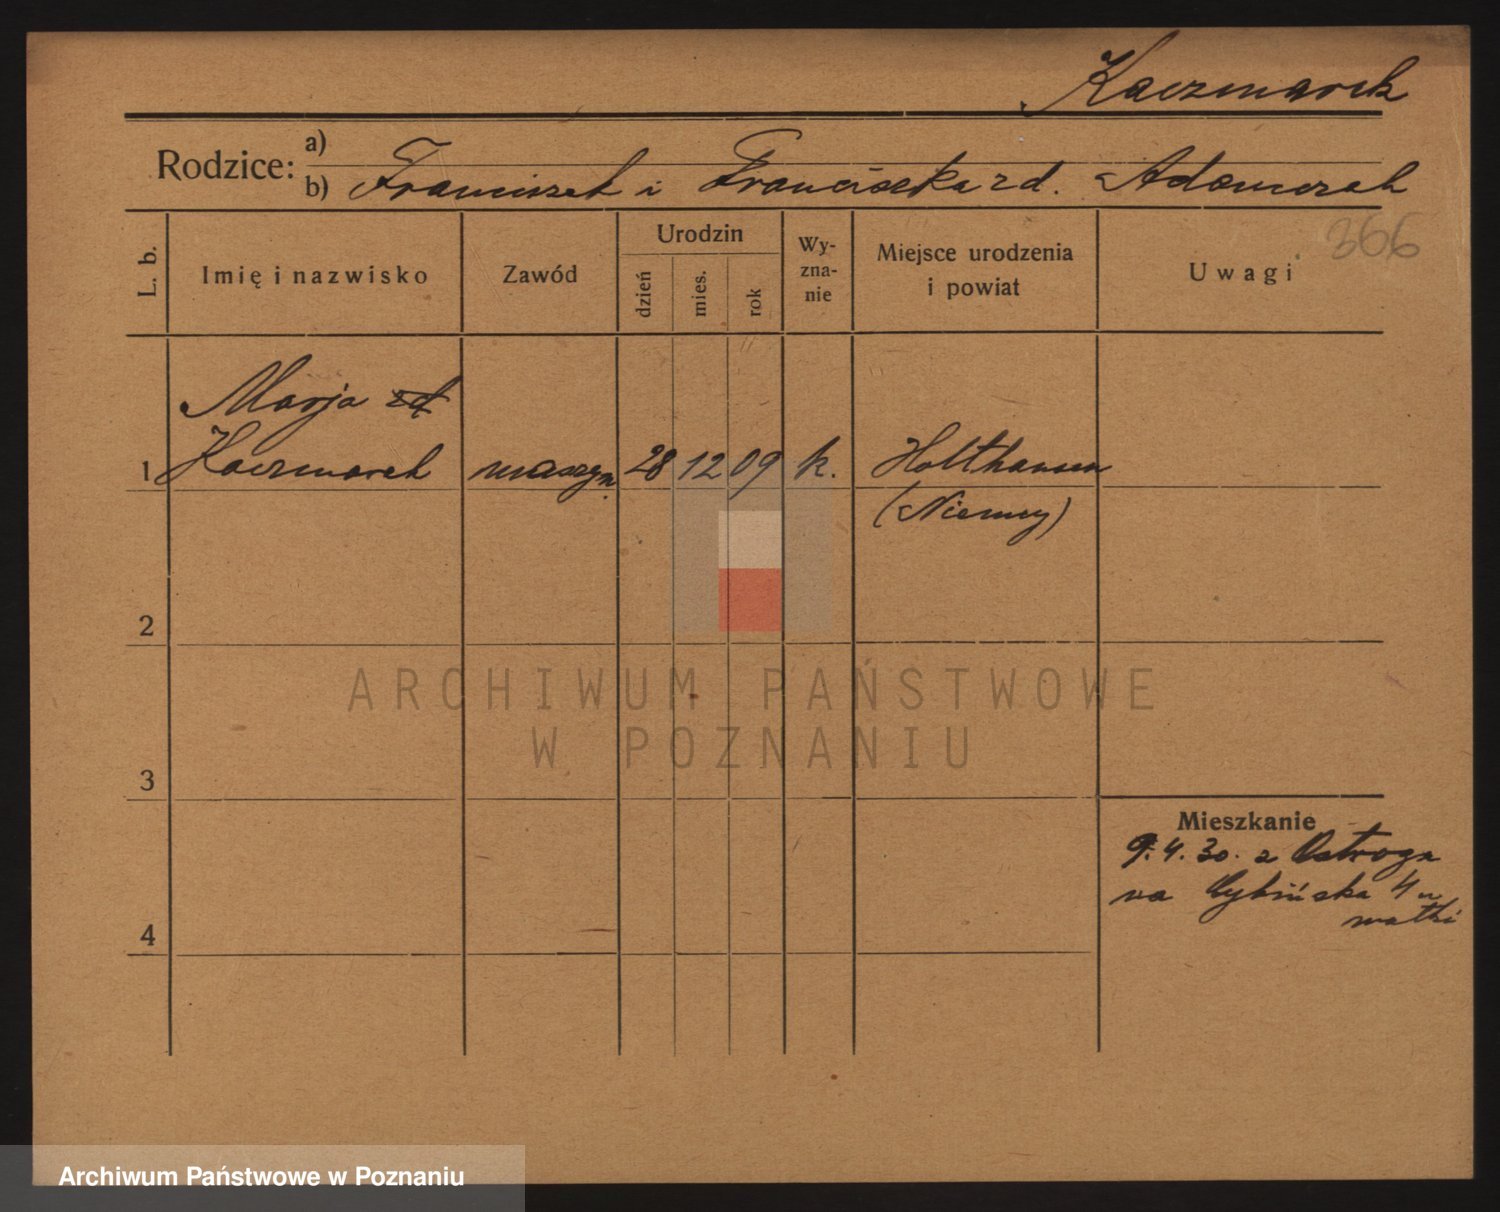 Kaczmarek
Rodzice: a)
b) Franciszek i Franciszka zd. Adamczak
366
L. b.
Imię i nazwisko
Zawód
Urodzin
dzień
mies.
rok
Wy-
zna-
nie
Miejsce urodzenia
i powiat
Uwagi
Marja zd
1 Kaczmarek maszyn. 28 12 09 k. Holthausen
(Niemcy)
2
3
4
Mieszkanie
9.4.30. z Ostroga
na Cybińska 4 u
matki
ARCHIWUM PAŃSTWOWE
W POZNANIU
Archiwum Państwowe w Poznaniu